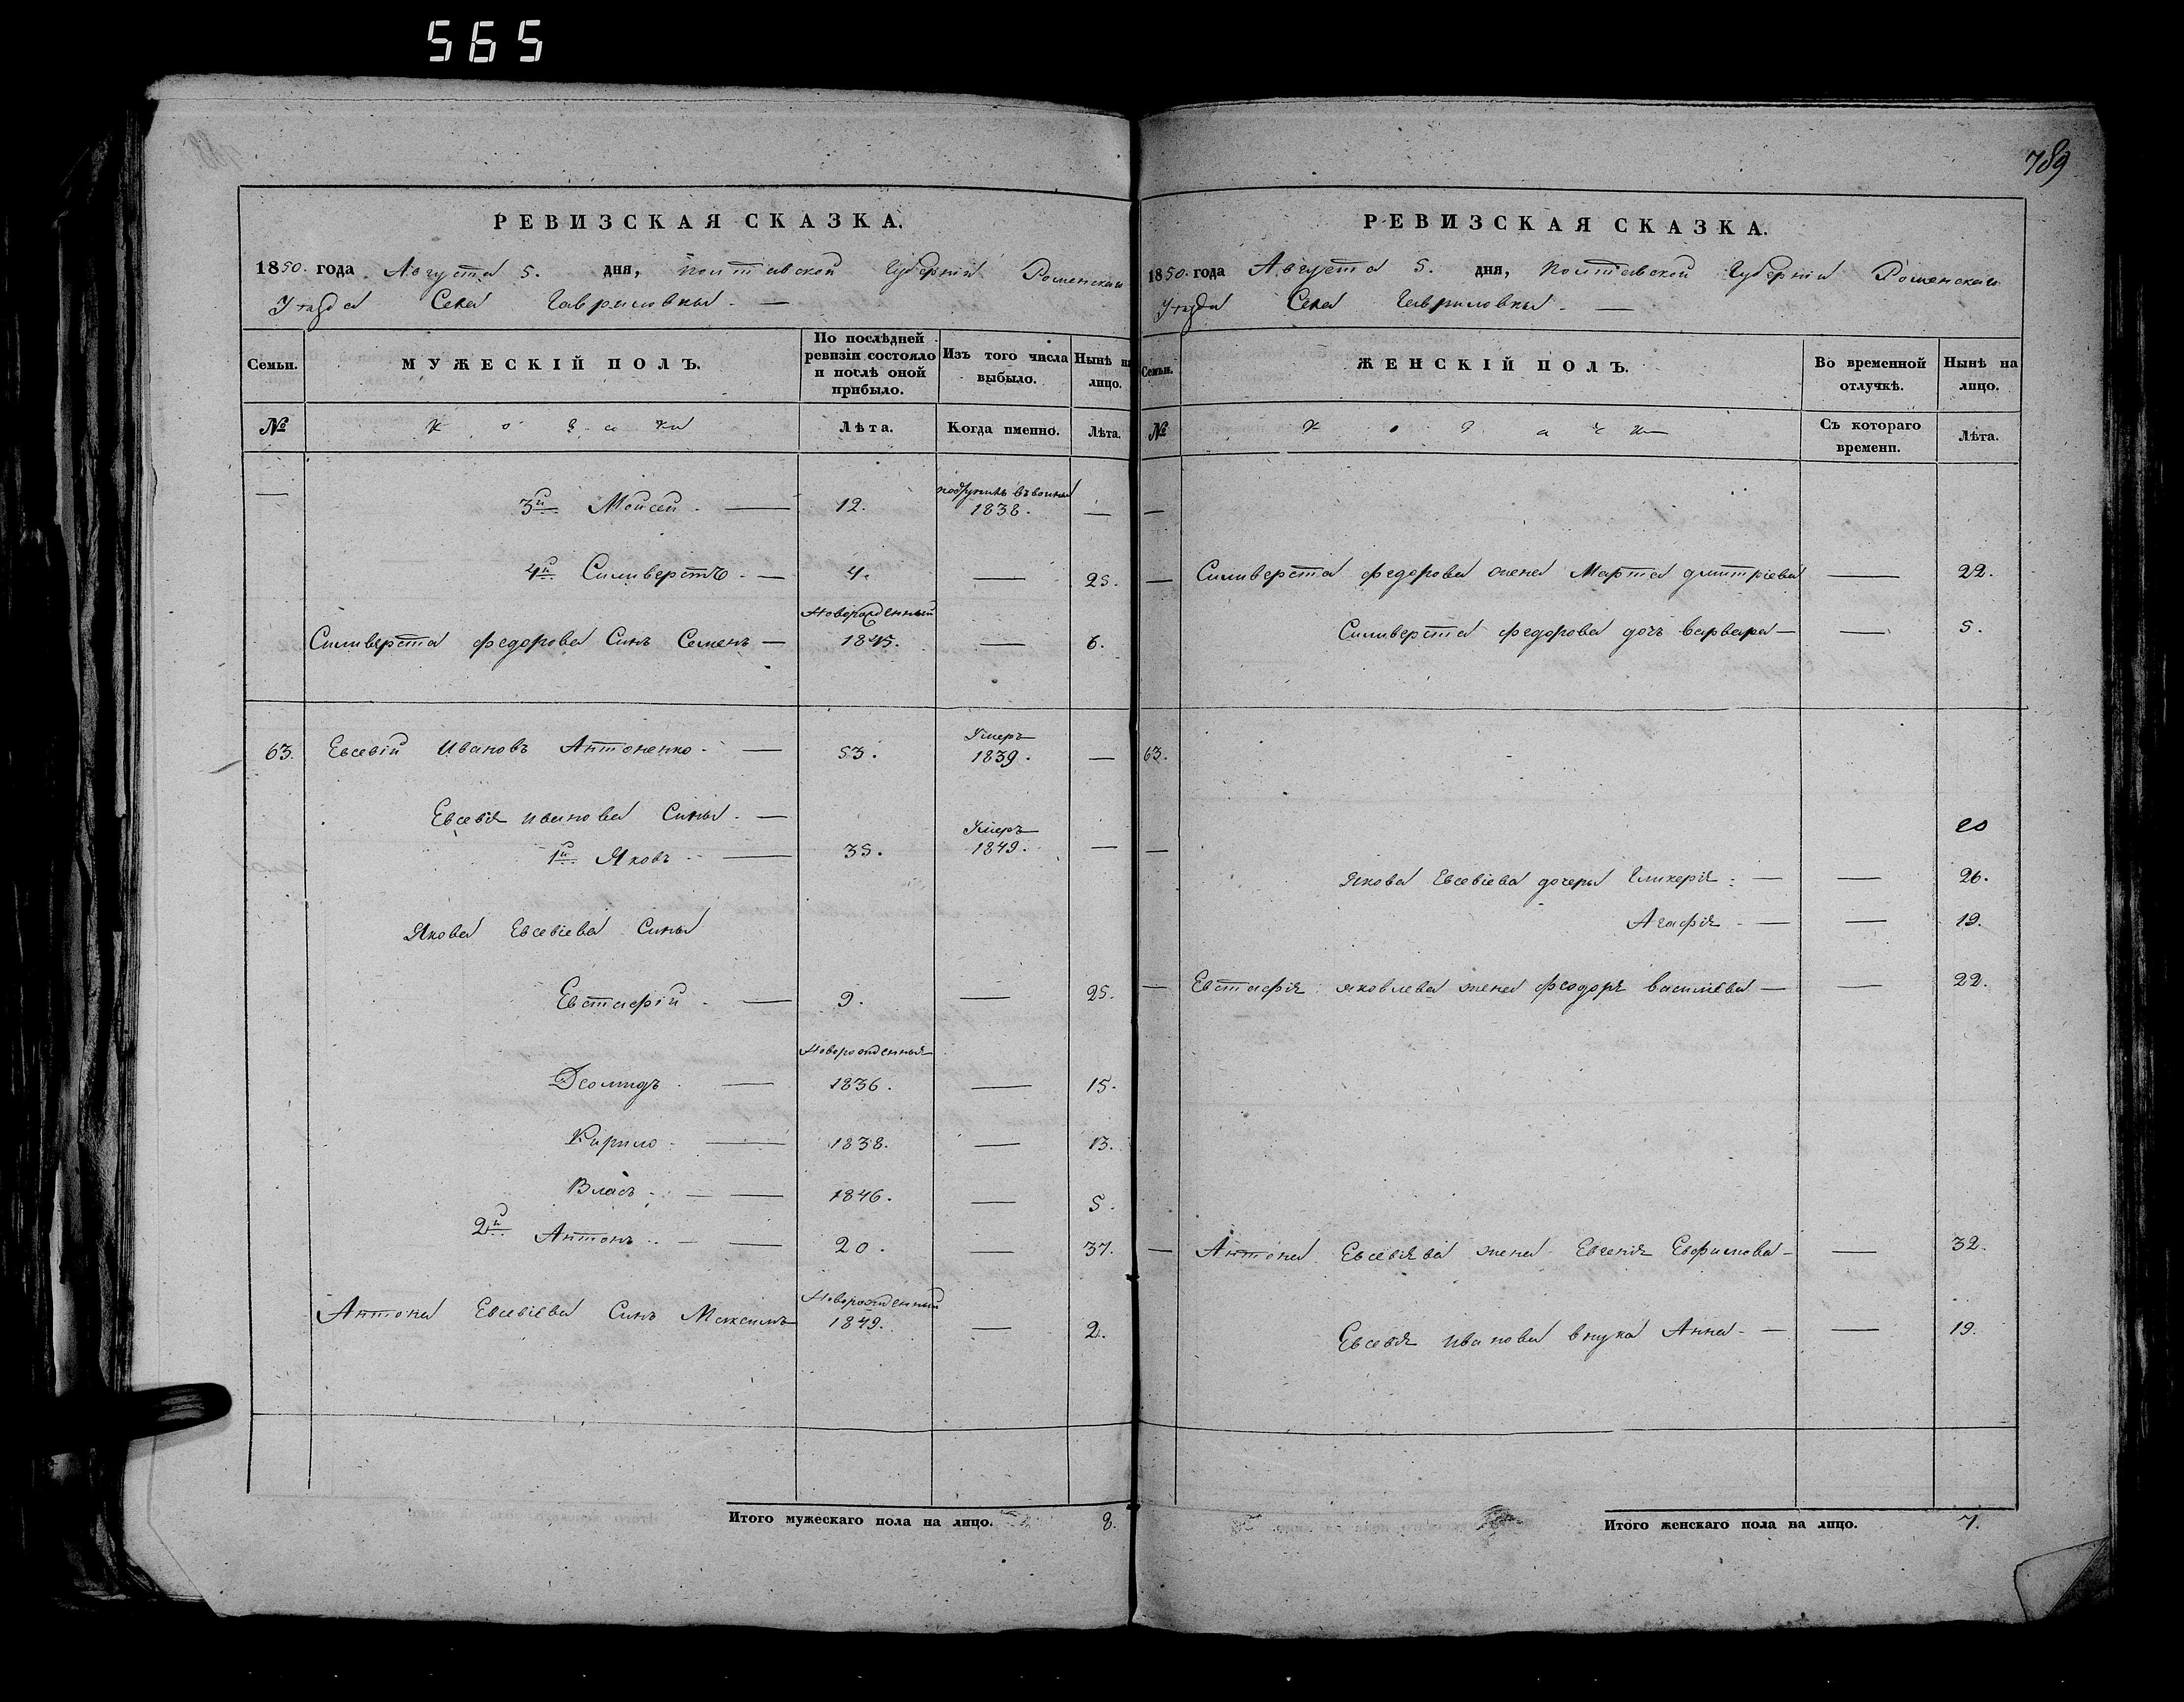 565
789
РЕВИЗСКАЯ СКАЗКА.
1850. года Августа 5. дня, Полтавской Губерніи Роменскаго
Уѣзда Села Гавриловки. —
Семьи. МУЖЕСКІЙ ПОЛЪ. По послѣдней ревизіи состояло и послѣ оной прибыло. Изъ того числа выбыло. Нынѣ на лицо.
№ Козаки Лѣта. Когда именно. Лѣта.
— 3й Мойсей. — 12. 1838. —
4й Силиверстъ. — 4. — 25.
Новорожденный
Силиверста Федорова Синъ Семенъ — 1845. — 6.
63. Евсевій Ивановъ Антоненко. — 53. Умеръ 1839. —
Евсевія Иванова Сины. —
1й Яковъ. — 35. Умеръ 1849. —
Якова Евсевіева Сины
Евстафій. — 9. — 25.
Новорожденныя
Деомидъ. — 1836. — 15.
Кирило. — 1838. — 13.
Власъ. — 1846. — 5.
2й Антонъ. — 20. — 37.
Новорожденный
Антона Евсевіева Синъ Максимъ 1849. — 2.
Итого мужескаго пола на лицо. 8.
РЕВИЗСКАЯ СКАЗКА.
1850. года Августа 5. дня, Полтавской Губерніи Роменскаго
Уѣзда Села Гавриловки. —
Семьи. ЖЕНСКІЙ ПОЛЪ. Во временной отлучкѣ. Нынѣ на лицо.
№ Козачки Съ котораго времени. Лѣта.
—
— Силиверста Федорова жена Марта Дмитріева — 22.
Силиверста Федорова дочь Варвара — — 5.
63.
—
Якова Евсевіева дочери Гликерія. — — 26.
Агафія. — — 19.
— Евстафія Яковлева жена Феодора Василіева — — 22.
— Антона Евсевіева жена Евгенія Ефимова — — 32.
Евсевія Иванова внука Анна. — — 19.
Итого женскаго пола на лицо. 7.